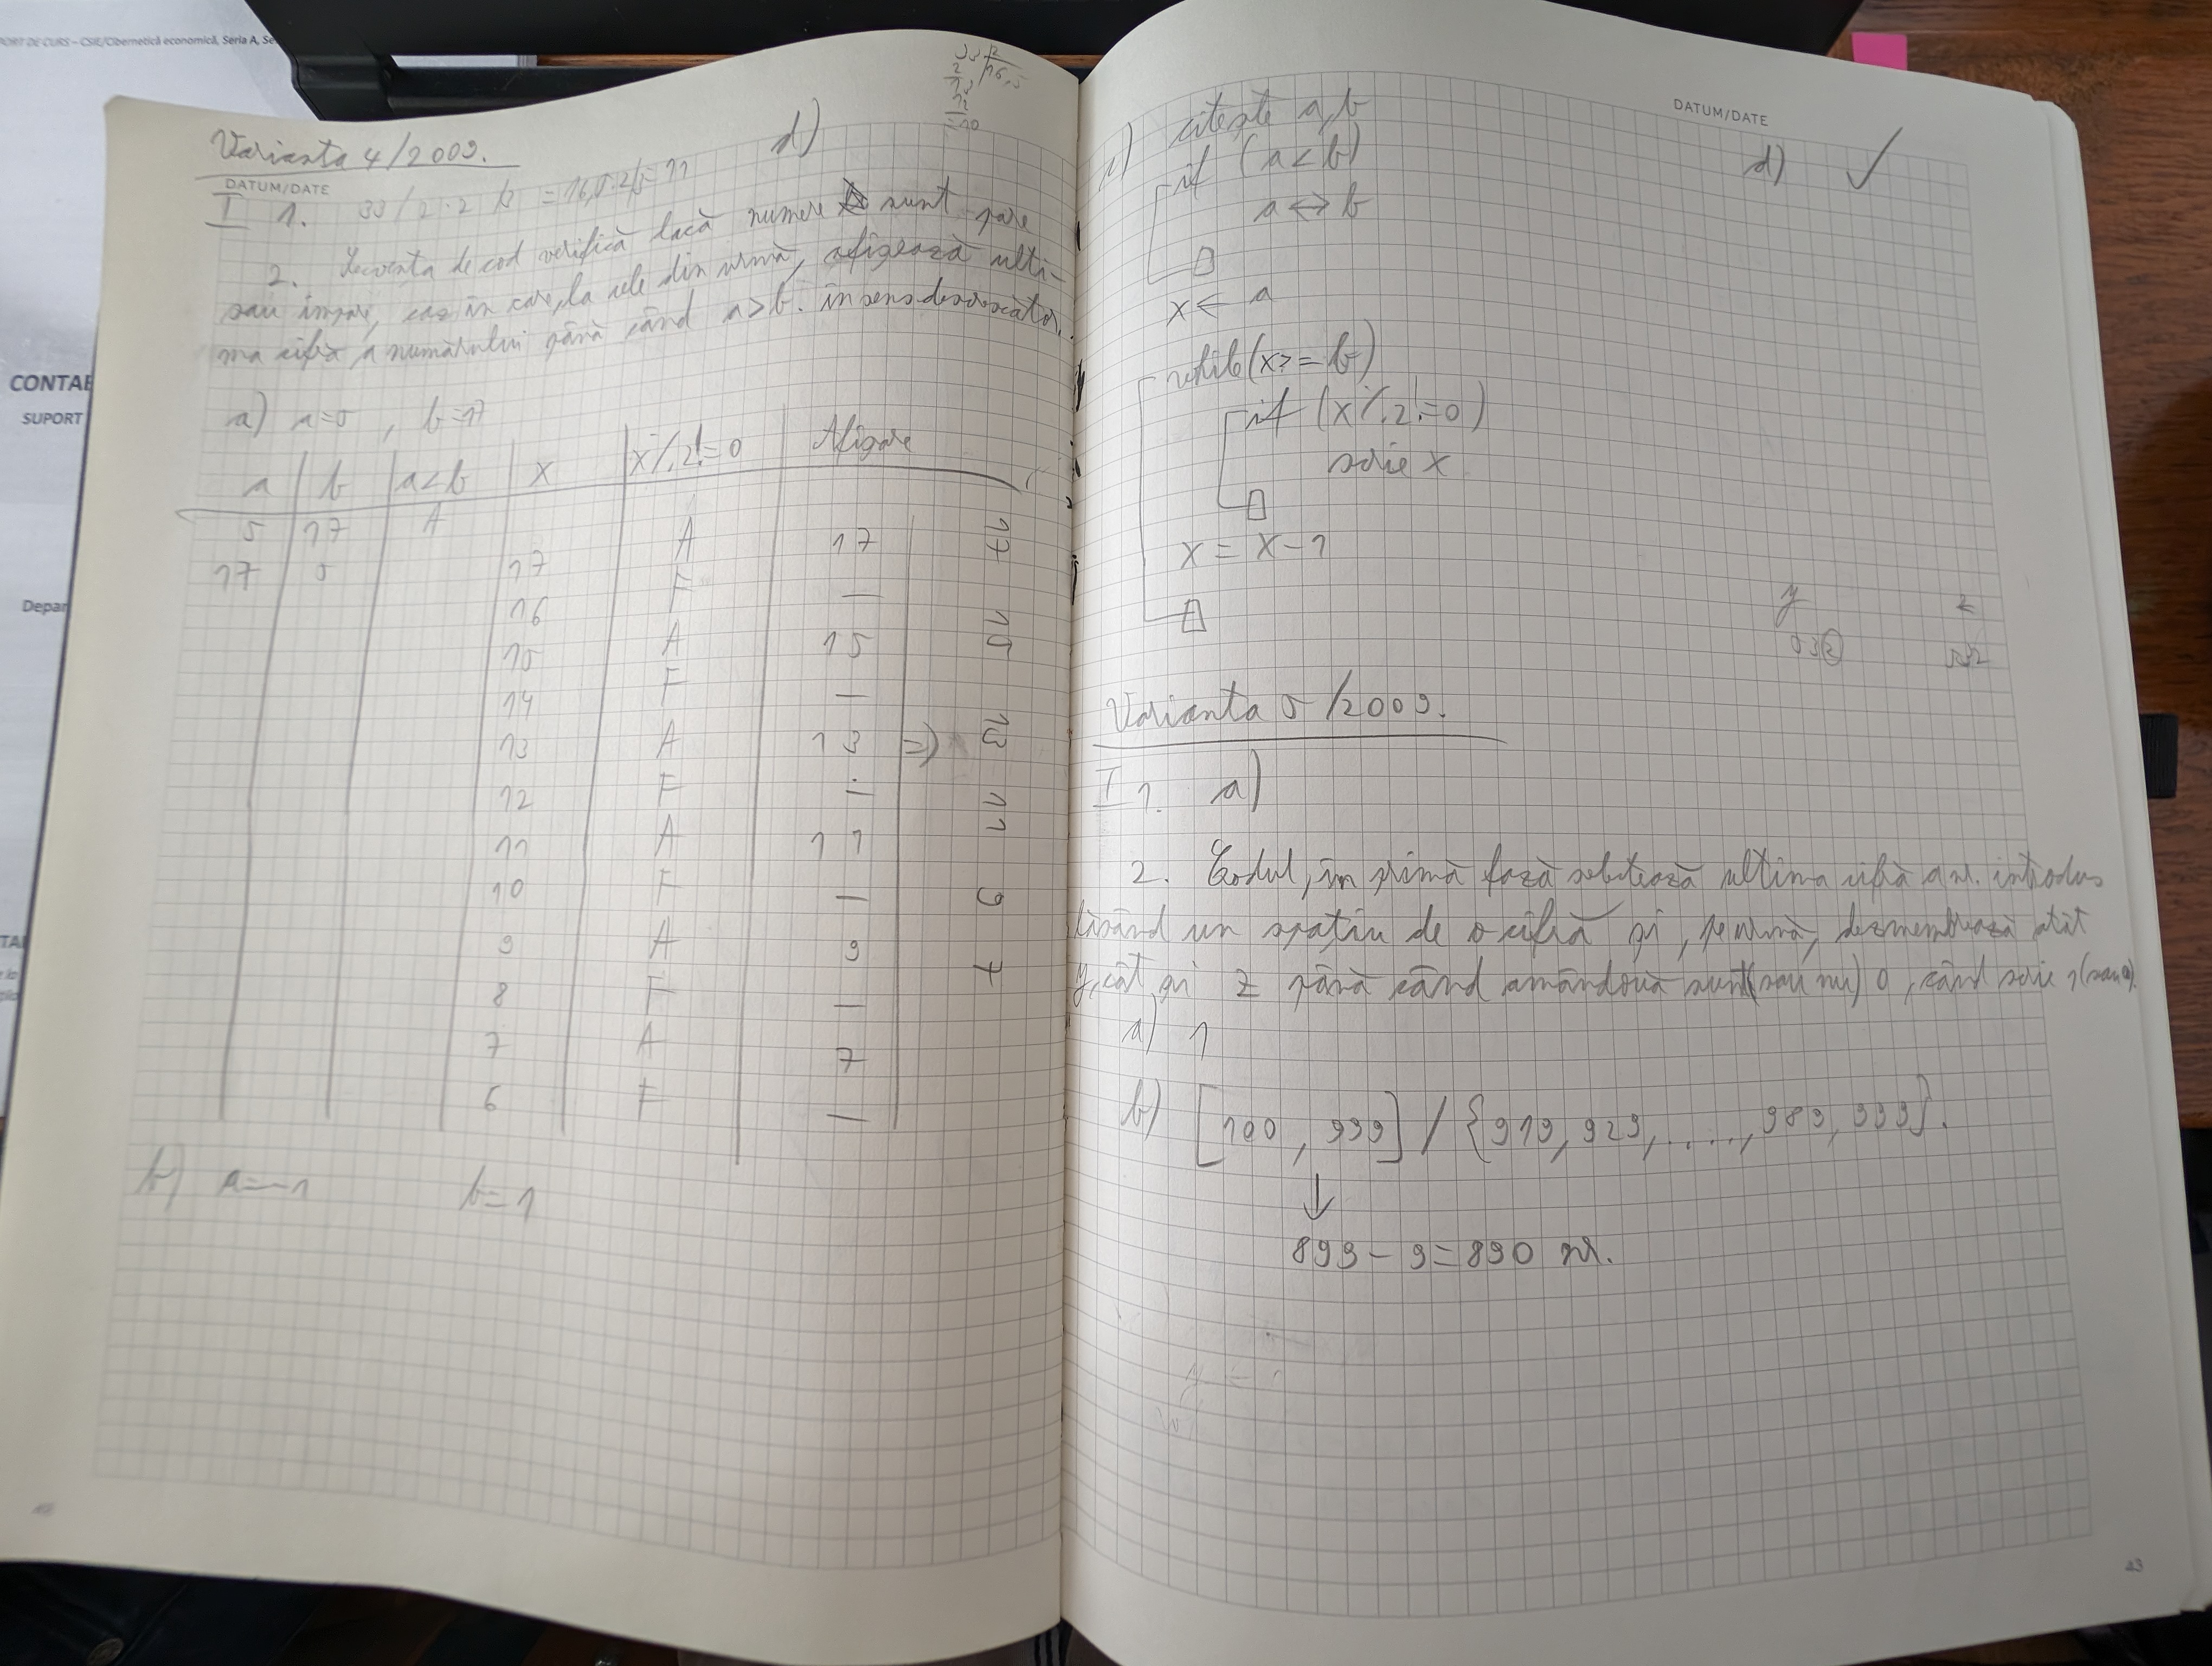 PORT DE CURS – CSIE/Cibernetică economică, Seria A, Se
CONTAB
SUPORT
Depar
Varianta 4/2009.
DATUM/DATE
d)
I 1. 33/2·2/3 = 16,5·2/3=11
2. Secvența de cod verifică dacă numere sunt pare
sau impare, caz în care, la cele din urmă, afișează ulti-
ma cifră a numărului până când a>b. în sens descrescător.
a) a=5, b=17
a b a<b x x%2!=0 Afișare
5 17 A
17 5 17 A 17
16 F —
15 A 15
14 F —
13 A 13 =>
12 F —
11 A 11
10 F —
9 A 9
8 F —
7 A 7
6 F —
17 15 13 11 9 7
b) a=-1 b=1
DATUM/DATE
c) citește a,b
d) ✓
if (a<b)
a<->b
x<-a
while(x>=b)
if (x%2!=0)
scrie x
x = x-1
y z
532
Varianta 5/2009.
I 1. a)
2. Codul, în primă fază selectează ultima cifră a nr. introdus
lăsând un spațiu de o cifră și, pe urmă, dezmembrează atât
y, cât și z până când amândouă sunt(sau nu) 0, când scrie 1(sau 0).
a) 1
b) [100, 999] / {919, 929, ....., 989, 999}.
↓
899-9=890 nr.
43